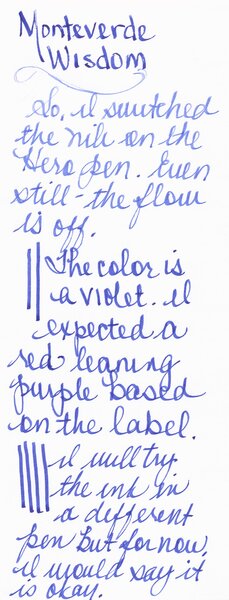 Monteverde
Wisdom
So, I switched
the nib on the
Hero pen. Even
still - the flow
is off.
The color is
a violet. I
expected a
red leaning
purple based
on the label.
I will try
the ink in
a different
pen but for now,
I would say it
is okay.